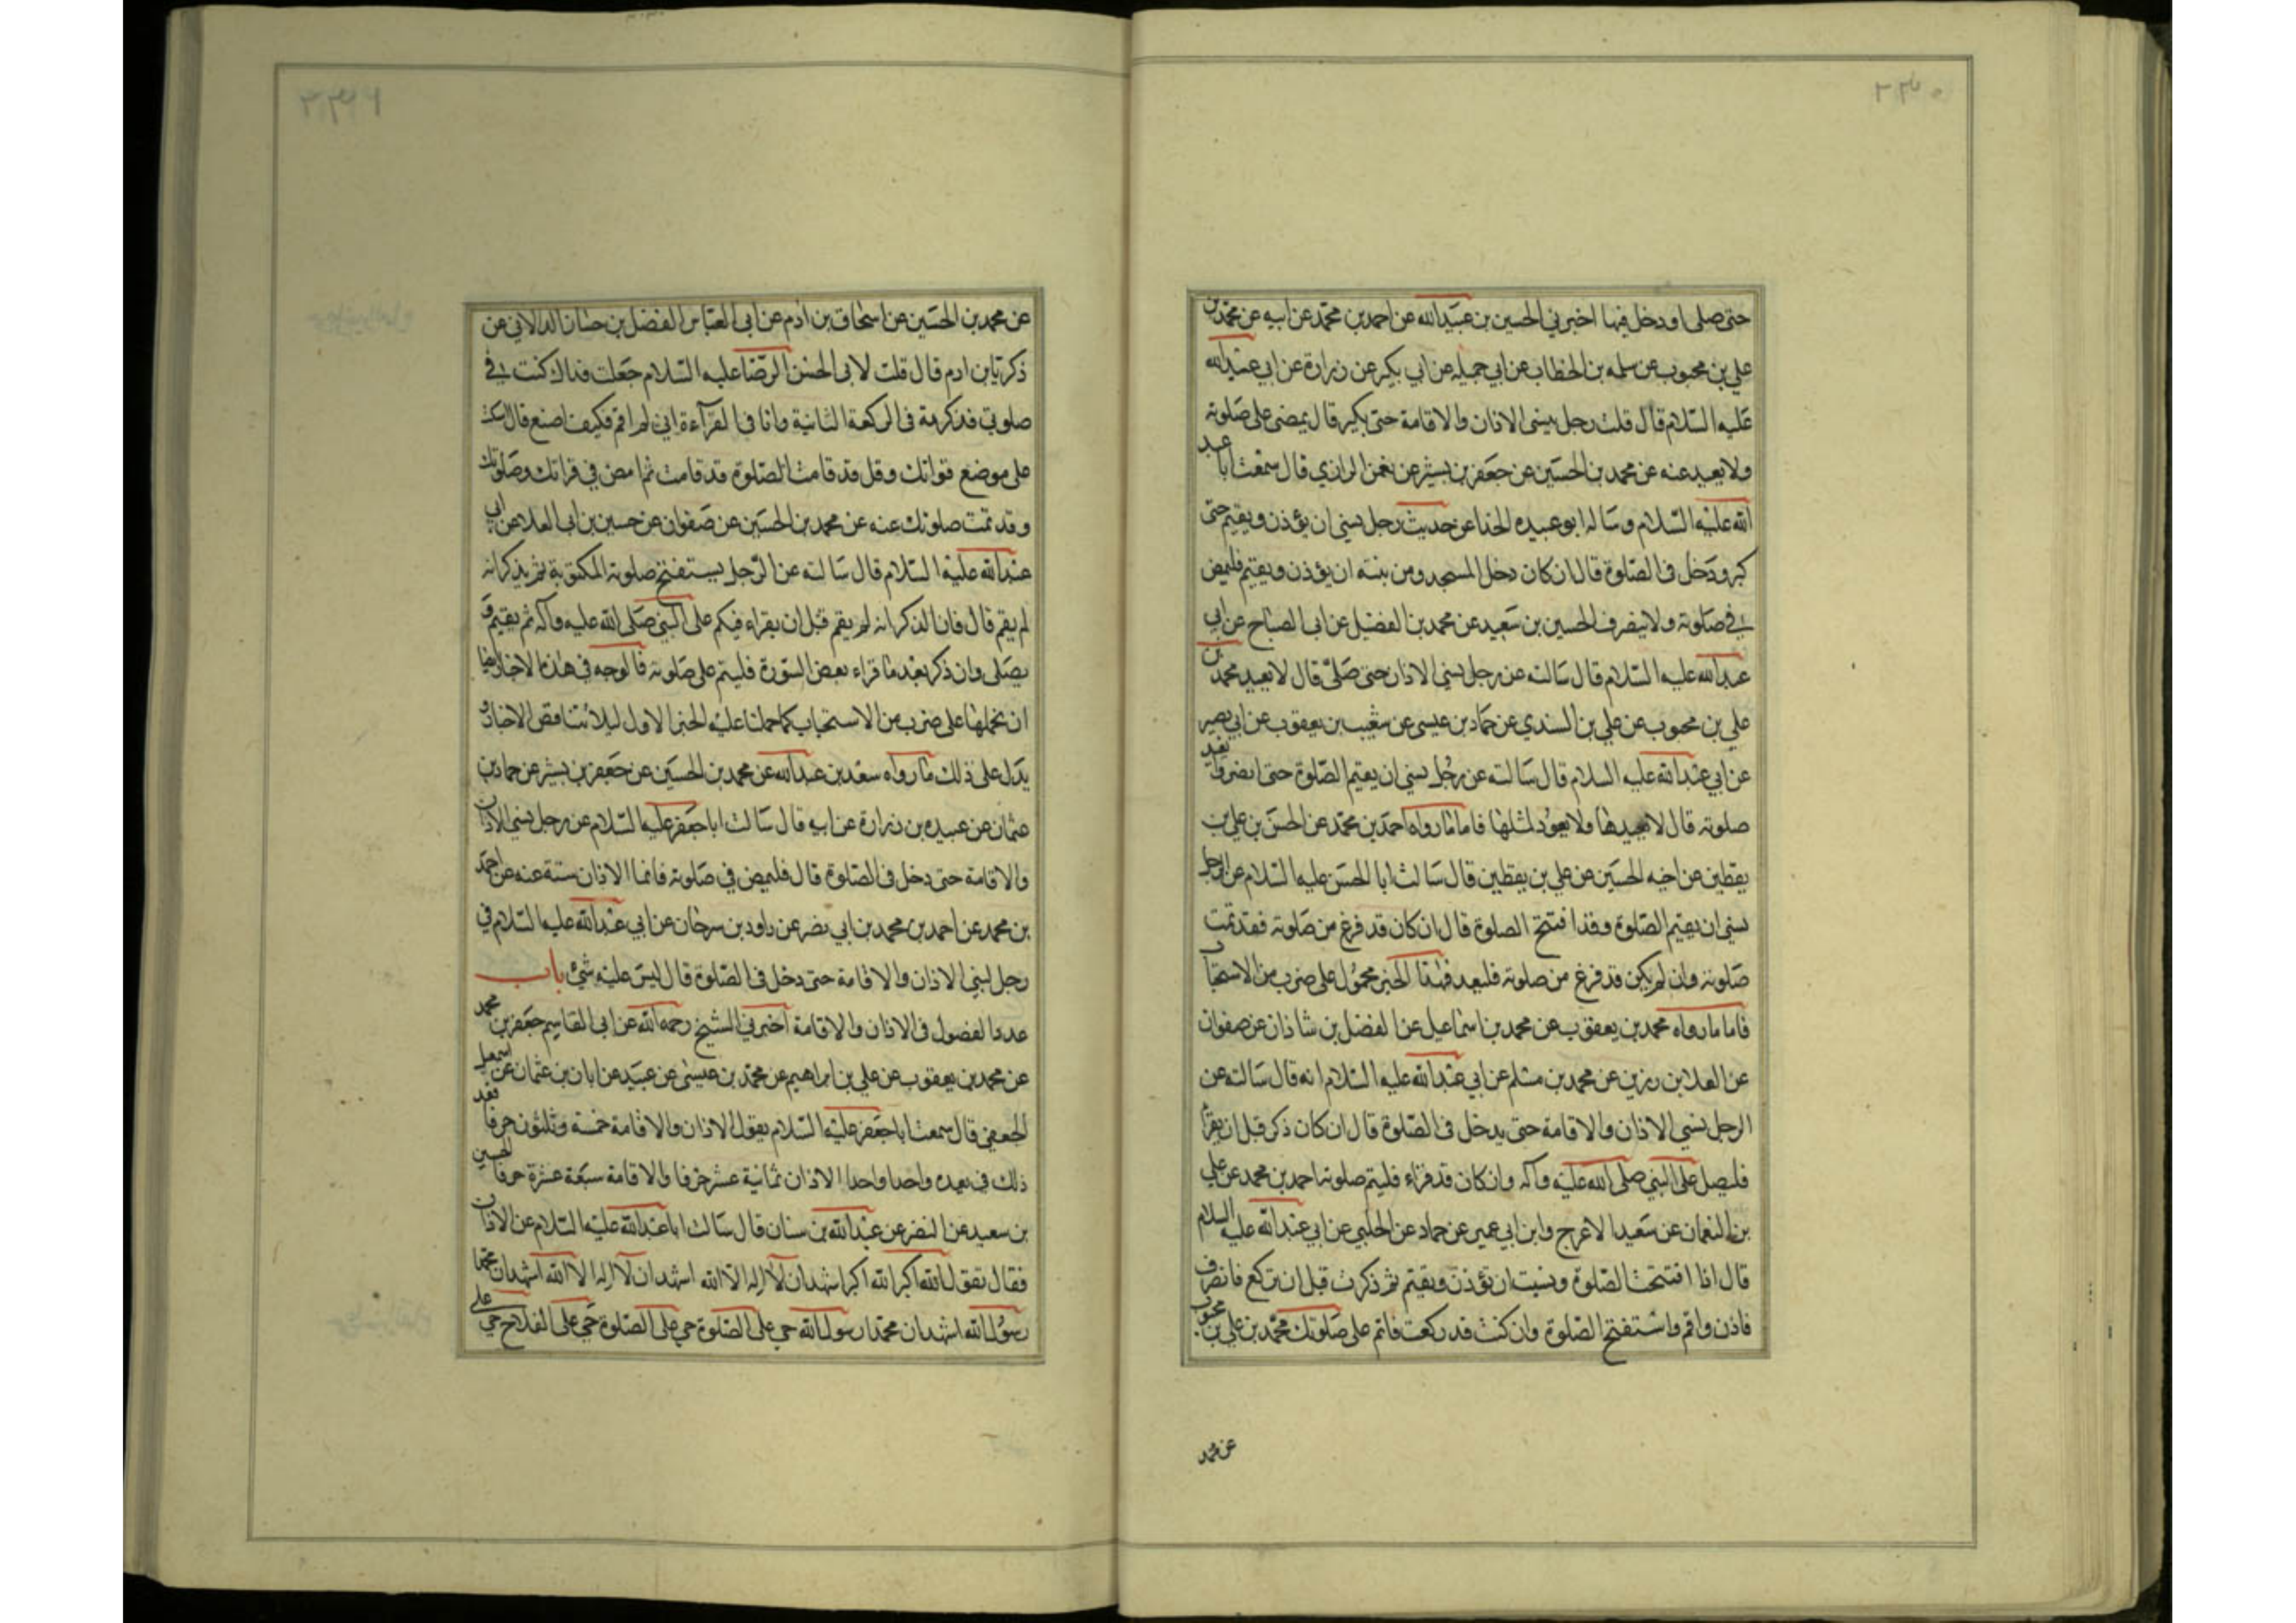 حتى صلى او دخل فيها اخبرني الحسين بن عبيد الله عن احمد بن محمد عن ابيه عن محمد بن
علي بن محبوب عن سلمه بن الخطاب عن ابي جميله عن ابي بكير عن زرارة عن ابي عبد الله
عليه السلام قال قلت رجل ينسى الاذان والاقامة حتى يكبر قال يمضى على صلوته
ولا يعيد عنه عن محمد بن الحسين عن جعفر بن بشير عن نعمن الرازي قال سمعت ابا عبد
الله عليه السلام وساله ابو عبيده الحذا عن حديث رجل نسي ان يؤذن ويقيم حتى
كبر ودخل في الصلوة قال ان كان دخل المسجد ومن نيته ان يؤذن ويقيم فليمض
في صلوته ولا ينصرف الحسين بن سعيد عن محمد بن الفضيل عن ابي الصباح عن ابي
عبد الله عليه السلام قال سالته عن رجل نسي الاذان حتى صلى قال لا يعيد محمد بن
علي بن محبوب عن علي بن السندي عن حماد بن عيسى عن شعيب بن يعقوب عن ابي بصير
عن ابي عبد الله عليه السلام قال سالته عن رجل نسي ان يقيم الصلوة حتى انصرف يعيد
صلوته قال لا يعيدها ولا يعود لمثلها فاما ما رواه احمد بن محمد عن الحسن بن علي بن
يقطين عن اخيه الحسين عن علي بن يقطين قال سالت ابا الحسن عليه السلام عن الرجل
نسي ان يقيم الصلوة وقد افتتح الصلوة قال ان كان قد فرغ من صلوته فقد تمت
صلوته وان لم يكن قد فرغ من صلوته فليعد فهذا الخبر محمول على ضرب من الاستحباب
فاما ما رواه محمد بن يعقوب عن محمد بن اسماعيل عن الفضل بن شاذان عن صفوان
عن العلا بن رزين عن محمد بن مسلم عن ابي عبد الله عليه السلام انه قال سالته عن
الرجل نسي الاذان والاقامة حتى يدخل في الصلوة قال ان كان ذكر قبل ان يقرأ
فليصل على النبي صلى الله عليه وآله وان كان قد قراء فليتم صلوته احمد بن محمد عن علي
بن النعمان عن سعيد الاعرج وابن ابي عمير عن حماد عن الحلبي عن ابي عبد الله عليه السلام
قال اذا افتتحت الصلوة ونسيت ان تؤذن وتقيم ثم ذكرت قبل ان تركع فانصرف
فاذن واقم واستفتح الصلوة وان كنت قد ركعت فاتم على صلوتك محمد بن علي بن محبوب
عن محمد
عن محمد بن الحسين عن اسحاق بن ادم عن ابي العباس الفضل بن حسان الدالاني عن
ذكريا بن ادم قال قلت لابي الحسن الرضا عليه السلام جعلت فداك كنت في
صلوتي فذكرت في الركعة الثانية وانا في القرآءة اني لم اقم فكيف اصنع قال اسكت
على موضع قراتك وقل قد قامت الصلوة قد قامت ثم امض في قراتك وصلوتك
وقد تمت صلوتك عنه عن محمد بن الحسين عن صفوان عن حسين بن ابي العلا عن ابي
عبد الله عليه السلام قال سالته عن الرجل يستفتح صلوته المكتوبة ثم يذكر انه
لم يقم قال فان الذكر انه لم يقم قبل ان يقراء فيكم على النبي صلى الله عليه وآله ثم يقيم و
يصلى وان ذكر بعد ما قراء بعض السورة فليتم على صلوته فالوجه في هذه الاخبار ايضا
ان نحملها على ضرب من الاستحباب كما حملنا عليه الخبر الاول ليلا تتناقض الاخبار و
يدل على ذلك ما رواه سعد بن عبد الله عن محمد بن الحسين عن جعفر بن بشير عن حماد بن
عثمان عن عبيده بن زرارة عن ابيه قال سالت ابا جعفر عليه السلام عن رجل نسي الاذان
والاقامة حتى دخل في الصلوة قال فليمض في صلوته فانما الاذان سنة عنه عن احمد
بن محمد عن احمد بن محمد بن ابي نصر عن داود بن سرحان عن ابي عبد الله عليه السلام في
رجل نسي الاذان والاقامة حتى دخل في الصلوة قال ليس عليه شئ باب
عدد الفصول في الاذان والاقامة اخبرني الشيخ رحمه الله عن ابي القاسم جعفر بن محمد
عن محمد بن يعقوب عن علي بن ابراهيم عن محمد بن عيسى عن عبيد عن ابان بن عثمان عن اسمعيل
الجعفي قال سمعت ابا جعفر عليه السلام يقول الاذان والاقامة خمسة وثلثون حرفا فعد
ذلك في بيده واحدا واحدا الاذان ثمانية عشر حرفا والاقامة سبعة عشرة حرفا الحسين
بن سعيد عن النضر عن عبد الله بن سنان قال سالت ابا عبد الله عليه السلام عن الاذان
فقال تقول الله اكبر الله اكبر اشهد ان لا اله الا الله اشهد ان لا اله الا الله اشهد ان محمدا
رسول الله اشهد ان محمدا رسول الله حي على الصلوة حي على الصلوة حي على الفلاح حي على